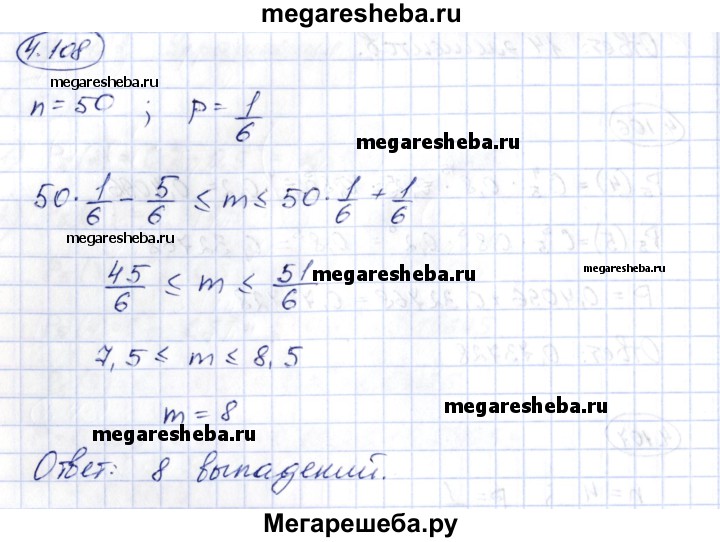 megaresheba.ru
4.108
megaresheba.ru
n = 50 ; p = 1/6
megaresheba.ru
50 · 1/6 - 5/6 ≤ m ≤ 50 · 1/6 + 1/6
megaresheba.ru
45/6 ≤ m ≤ 51/6
megaresheba.ru
megaresheba.ru
7,5 ≤ m ≤ 8,5
m = 8
megaresheba.ru
megaresheba.ru
Ответ: 8 выпадений.
Мегарешеба.ру